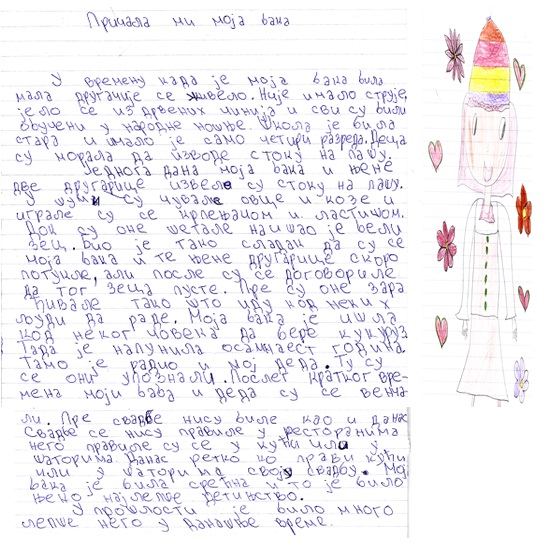 Причала ми моја бака
У времену када је моја бака била
мала другачије се живело. Није имало струје,
јело се из дрвених чинија и сви су били
обучени у народне ношње. Школа је била
стара и имало је само четири разреда. Деца
су морала да изводе стоку на пашу.
Једнога дана моја бака и њене
две другарице извеле су стоку на пашу.
У шуми су чували овце и козе и
играле су се крпењачом и ластишом.
Док су оне шетале наишао је бели
зец. Био је тако сладак да су се
моја бака и те њене другарице скоро
потукле, али после су се договориле
да тог зеца пусте. Пре су оне зара
ђивале тако што иду код неких
људи да раде. Моја бака је ишла
код неког човека да бере кукуруз.
Тада је напунила осамнаест година.
Тамо је радио и мој деда. Ту су
се они упознали. После кратког вре-
мена моји баба и деда су се венча-
ли. Пре свадбе нису биле као и данас
Свадбе се нису правиле у ресторанима
него правиле су се у кући или у
шаторима. Данас ретко ко прави кући
или у шаторима своју свадбу. Мој
бака је била срећна и то је било
њено најлепше детињство.
У прошлости је било много
лепше него у данашње време.